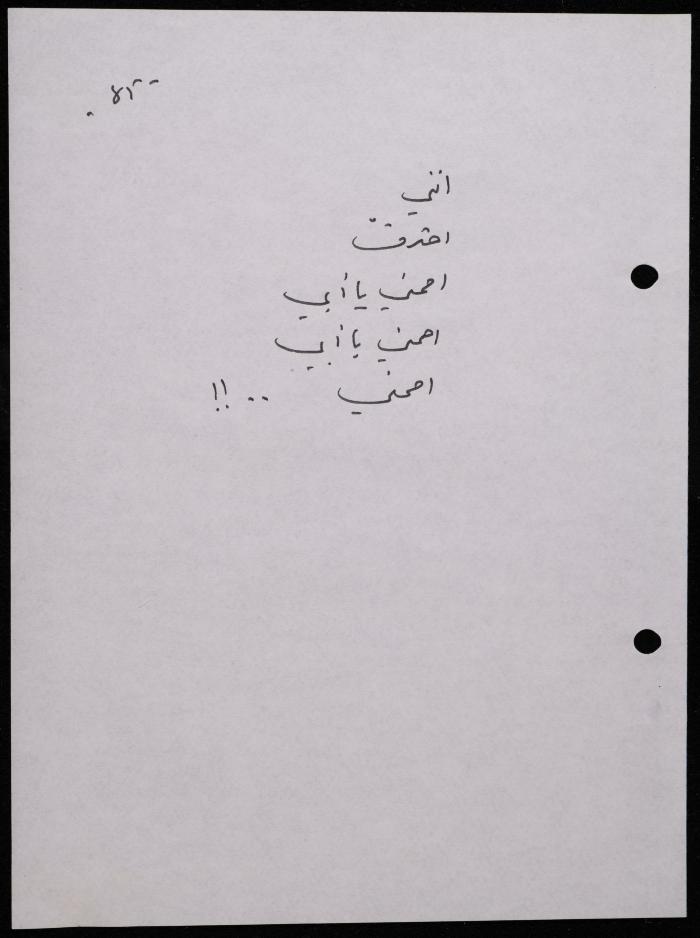 انني
احترقت
احمني يا أبي
احمني يا أبي
احمني .. !!